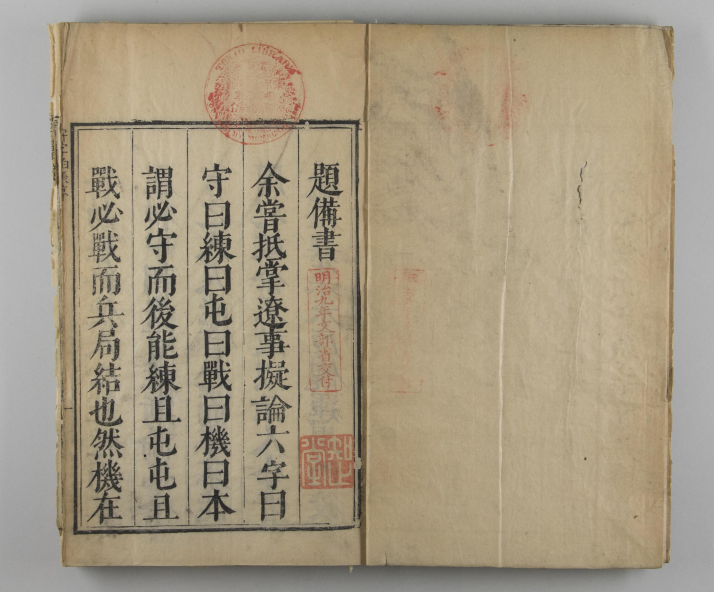 題備書
余嘗抵掌遼事擬論六字曰
守曰練曰屯曰戰曰機曰本
謂必守而後能練且屯屯且
戰必戰而兵局結也然機在
明治九年文部省交付